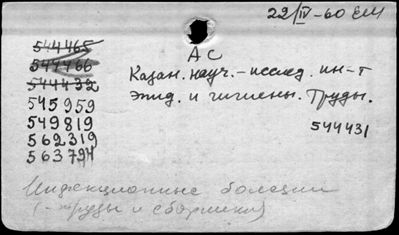 22/IV-60 ЕМ
АС
544465
544466
544432
545959
549819
562319
563794
Казан. науч.-исслед. ин-т
эпид. и гигиены. Труды.
544431
Инфекционные болезни
(-труды и сборники)